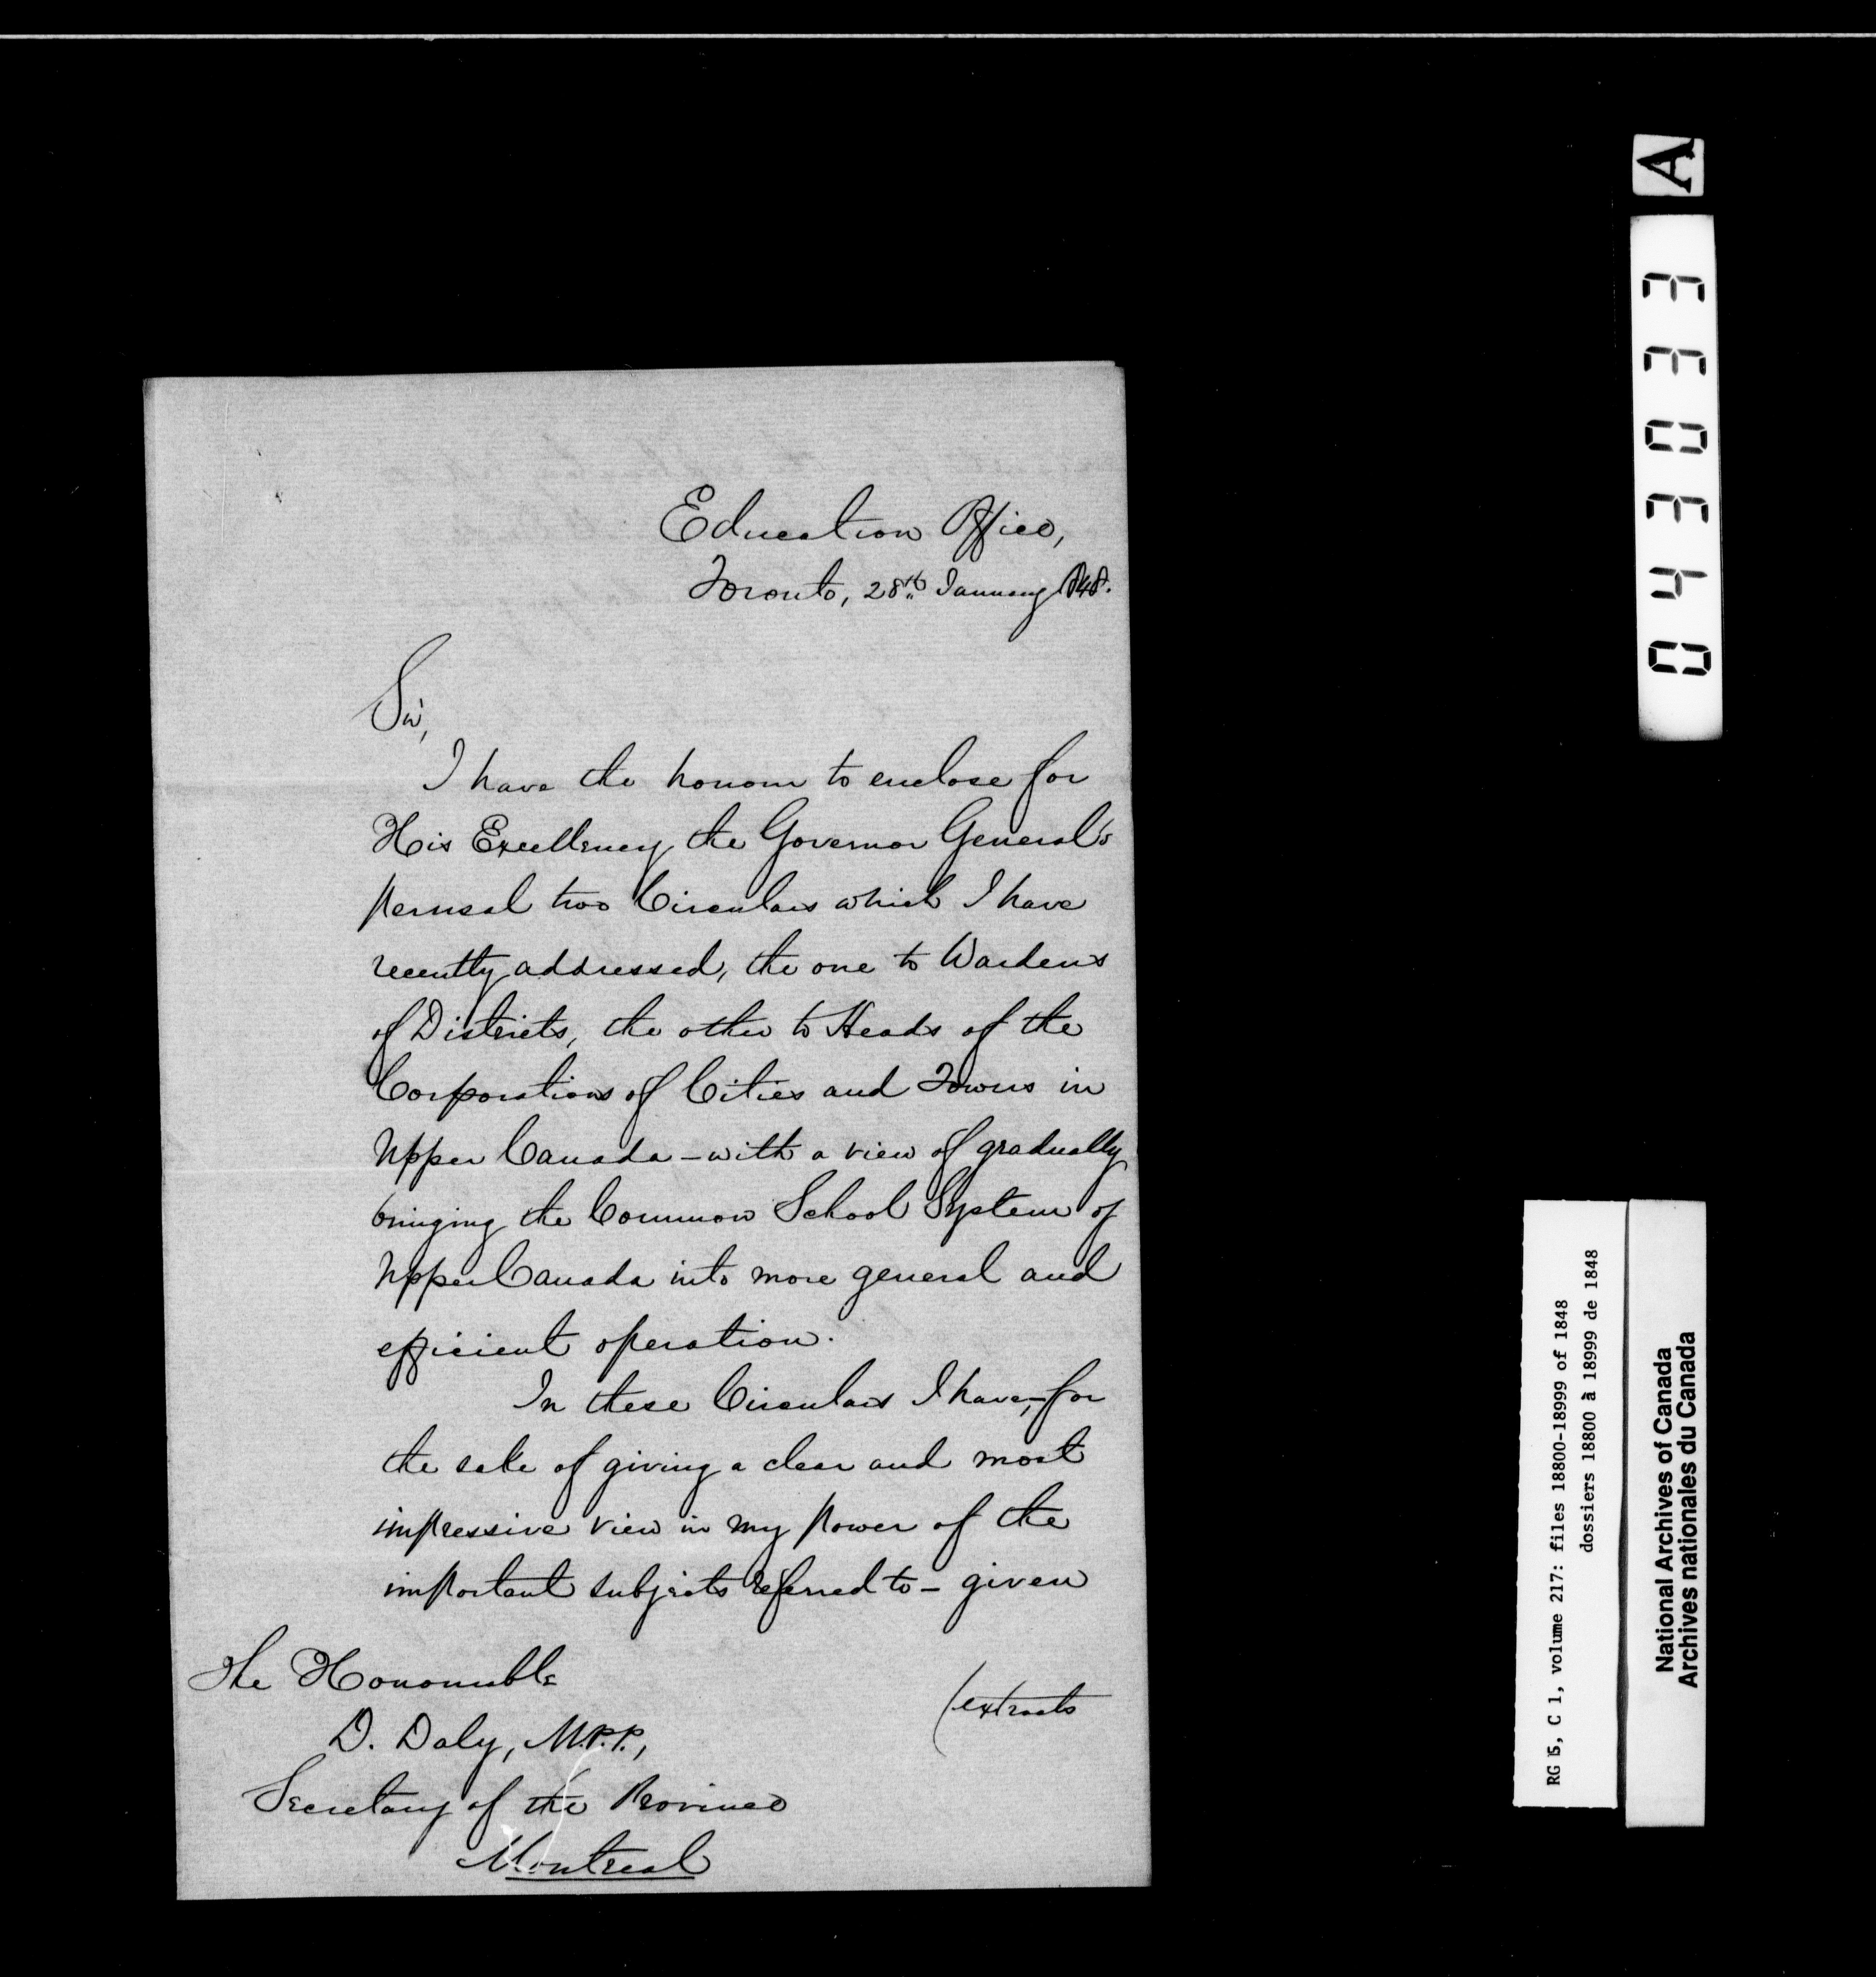 Education Office,
Toronto, 28th January 1848.
Sir,
I have the honour to enclose for
His Excellency the Governor General's
perusal two Circulars which I have
recently addressed, the one to Wardens
of Districts, the other to Heads of the
Corporations of Cities and Towns in
Upper Canada - with a view of gradually
bringing the Common School System of
Upper Canada into more general and
efficient operation.
In these Circulars I have, - for
the sake of giving a clear and most
impressive view in my power of the
important subjects referred to - given
(extracts
The Honourable
D. Daly, M.P.P.,
Secretary of the Province
Montreal
A
043033
RG 5, C 1, volume 217: files 18800-18999 of 1848
dossiers 18800 à 18999 de 1848
National Archives of Canada
Archives nationales du Canada